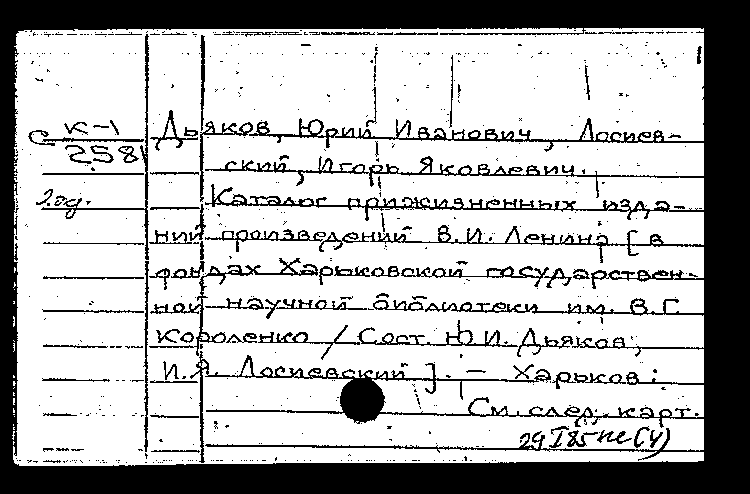 С К-1
2581
Дьяков, Юрий Иванович, Лосиев-
ский, Игорь Яковлевич.
2 од.
Каталог прижизненных изда-
ний произведений В.И. Ленина [в
фондах Харьковской государствен-
ной научной библиотеки им. В.Г
Короленко / Сост. Ю.И. Дьяков,
И.Я. Лосиевский]. — Харьков:
См. след. карт.
29 I 85